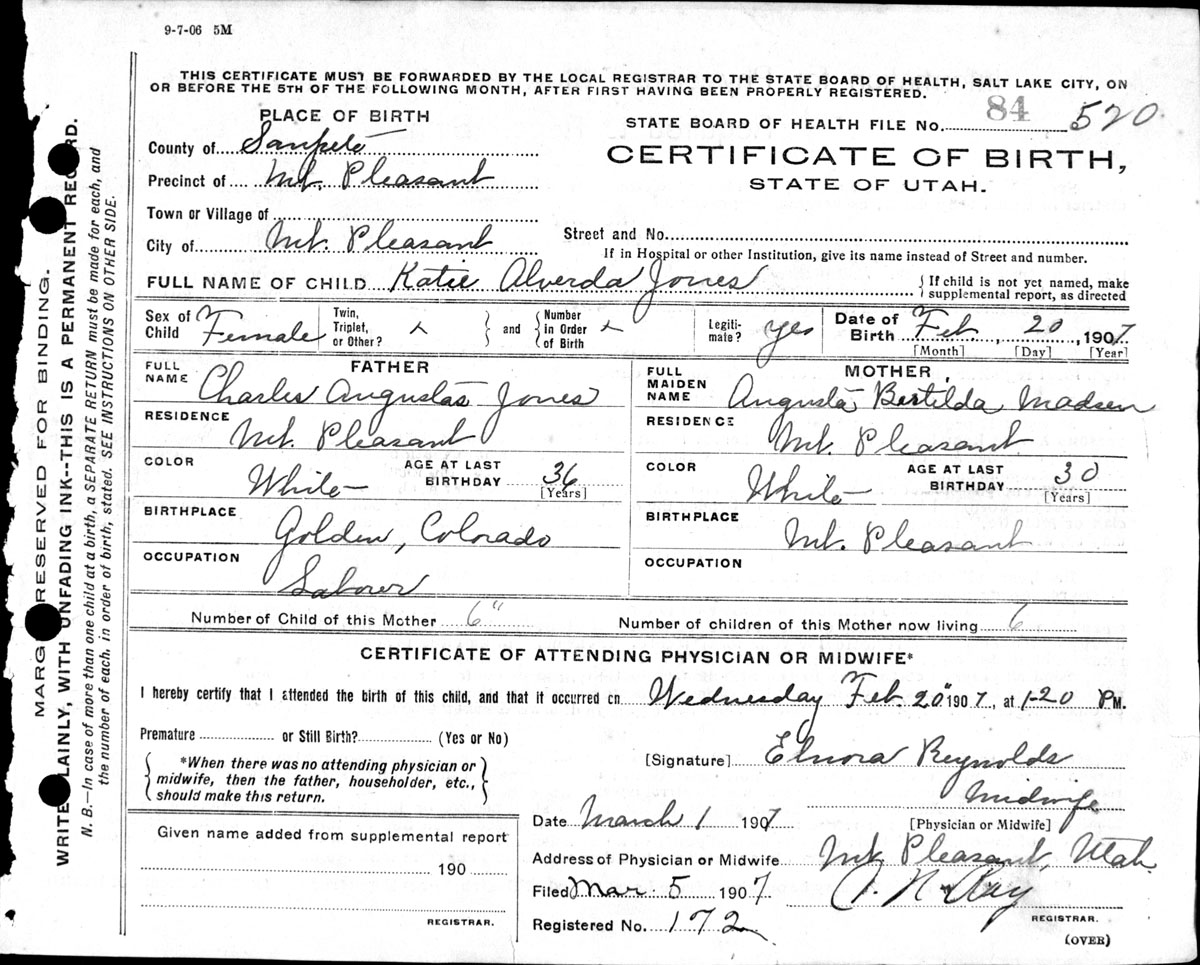 9-7-06 5M
THIS CERTIFICATE MUST BE FORWARDED BY THE LOCAL REGISTRAR TO THE STATE BOARD OF HEALTH, SALT LAKE CITY, ON
OR BEFORE THE 5TH OF THE FOLLOWING MONTH, AFTER FIRST HAVING BEEN PROPERLY REGISTERED.
PLACE OF BIRTH
County of Sanpete
Precinct of Mt. Pleasant
Town or Village of
City of Mt. Pleasant
STATE BOARD OF HEALTH FILE No. 84 520
CERTIFICATE OF BIRTH,
STATE OF UTAH.
Street and No.
If in Hospital or other Institution, give its name instead of Street and number.
FULL NAME OF CHILD Katie Alverda Jones
{ If child is not yet named, make
supplemental report, as directed
Sex of Child Female
Twin, Triplet, or Other? x
and
Number in Order of Birth x
Legiti-mate? yes
Date of Birth Feb. 20, 1907
[Month] [Day] [Year]
FATHER
FULL NAME Charles Augustas Jones
RESIDENCE Mt. Pleasant
COLOR White
AGE AT LAST BIRTHDAY 36
[Years]
BIRTHPLACE Golden, Colorado
OCCUPATION Laborer
MOTHER
FULL MAIDEN NAME Augusta Bertilda Madsen
RESIDENCE Mt. Pleasant
COLOR White
AGE AT LAST BIRTHDAY 30
[Years]
BIRTHPLACE Mt. Pleasant
OCCUPATION
Number of Child of this Mother 6"
Number of children of this Mother now living 6
CERTIFICATE OF ATTENDING PHYSICIAN OR MIDWIFE*
I hereby certify that I attended the birth of this child, and that it occurred on Wednesday Feb. 20" 1907, at 1-20 PM.
Premature or Still Birth? (Yes or No)
*When there was no attending physician or
midwife, then the father, householder, etc.,
should make this return.
[Signature] Elnora Reynolds
Midwife
[Physician or Midwife]
Date March 1 1907
Address of Physician or Midwife Mt. Pleasant, Utah
Filed Mar. 5 1907
REGISTRAR.
Registered No. 172
(OVER)
Given name added from supplemental report
190
REGISTRAR.
MARG RESERVED FOR BINDING.
WRITE LAINLY, WITH UNFADING INK--THIS IS A PERMANENT REC RD.
N. B.—In case of more than one child at a birth, a SEPARATE RETURN must be made for each, and
the number of each, in order of birth, stated. SEE INSTRUCTIONS ON OTHER SIDE.